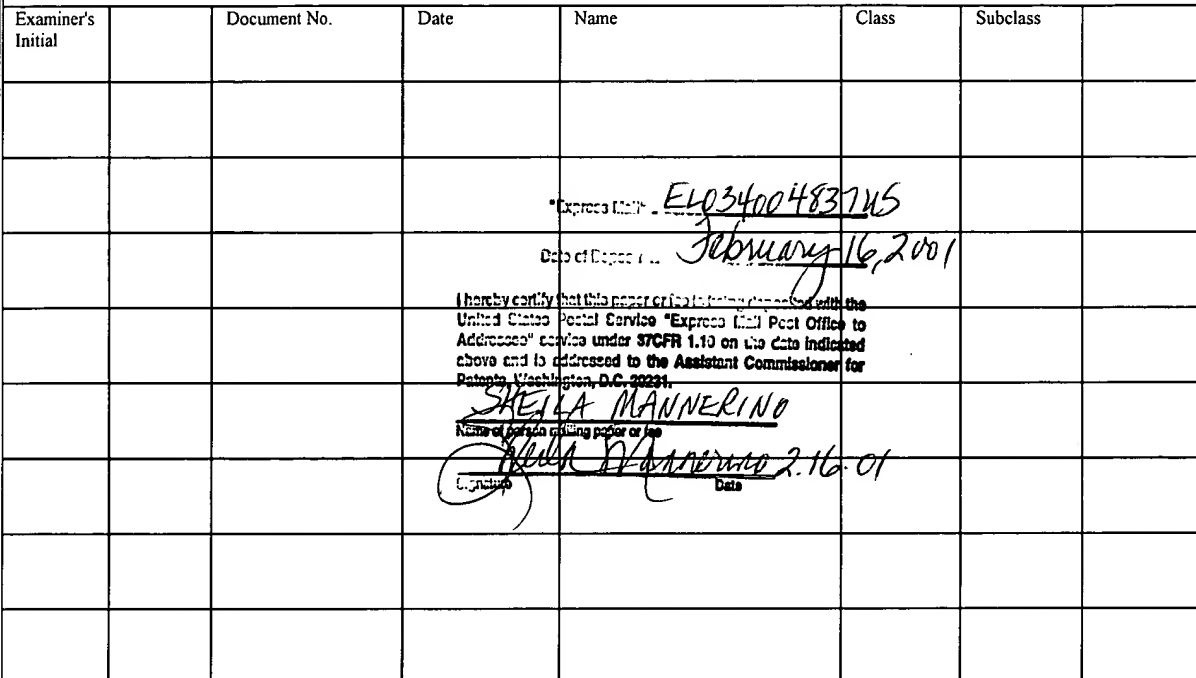 Examiner's Initial Document No. Date Name Class Subclass
"Express Mail" EL034004837US
Date of Deposit February 16, 2001
I hereby certify that this paper or fee is being deposited with the
United States Postal Service "Express Mail Post Office to
Addressee" service under 37CFR 1.10 on the date indicated
above and is addressed to the Assistant Commissioner for
Patents, Washington, D.C. 20231.
SHEILA MANNERINO
Name of person mailing paper or fee
Sheila Mannerino 2.16.01
Signature Date